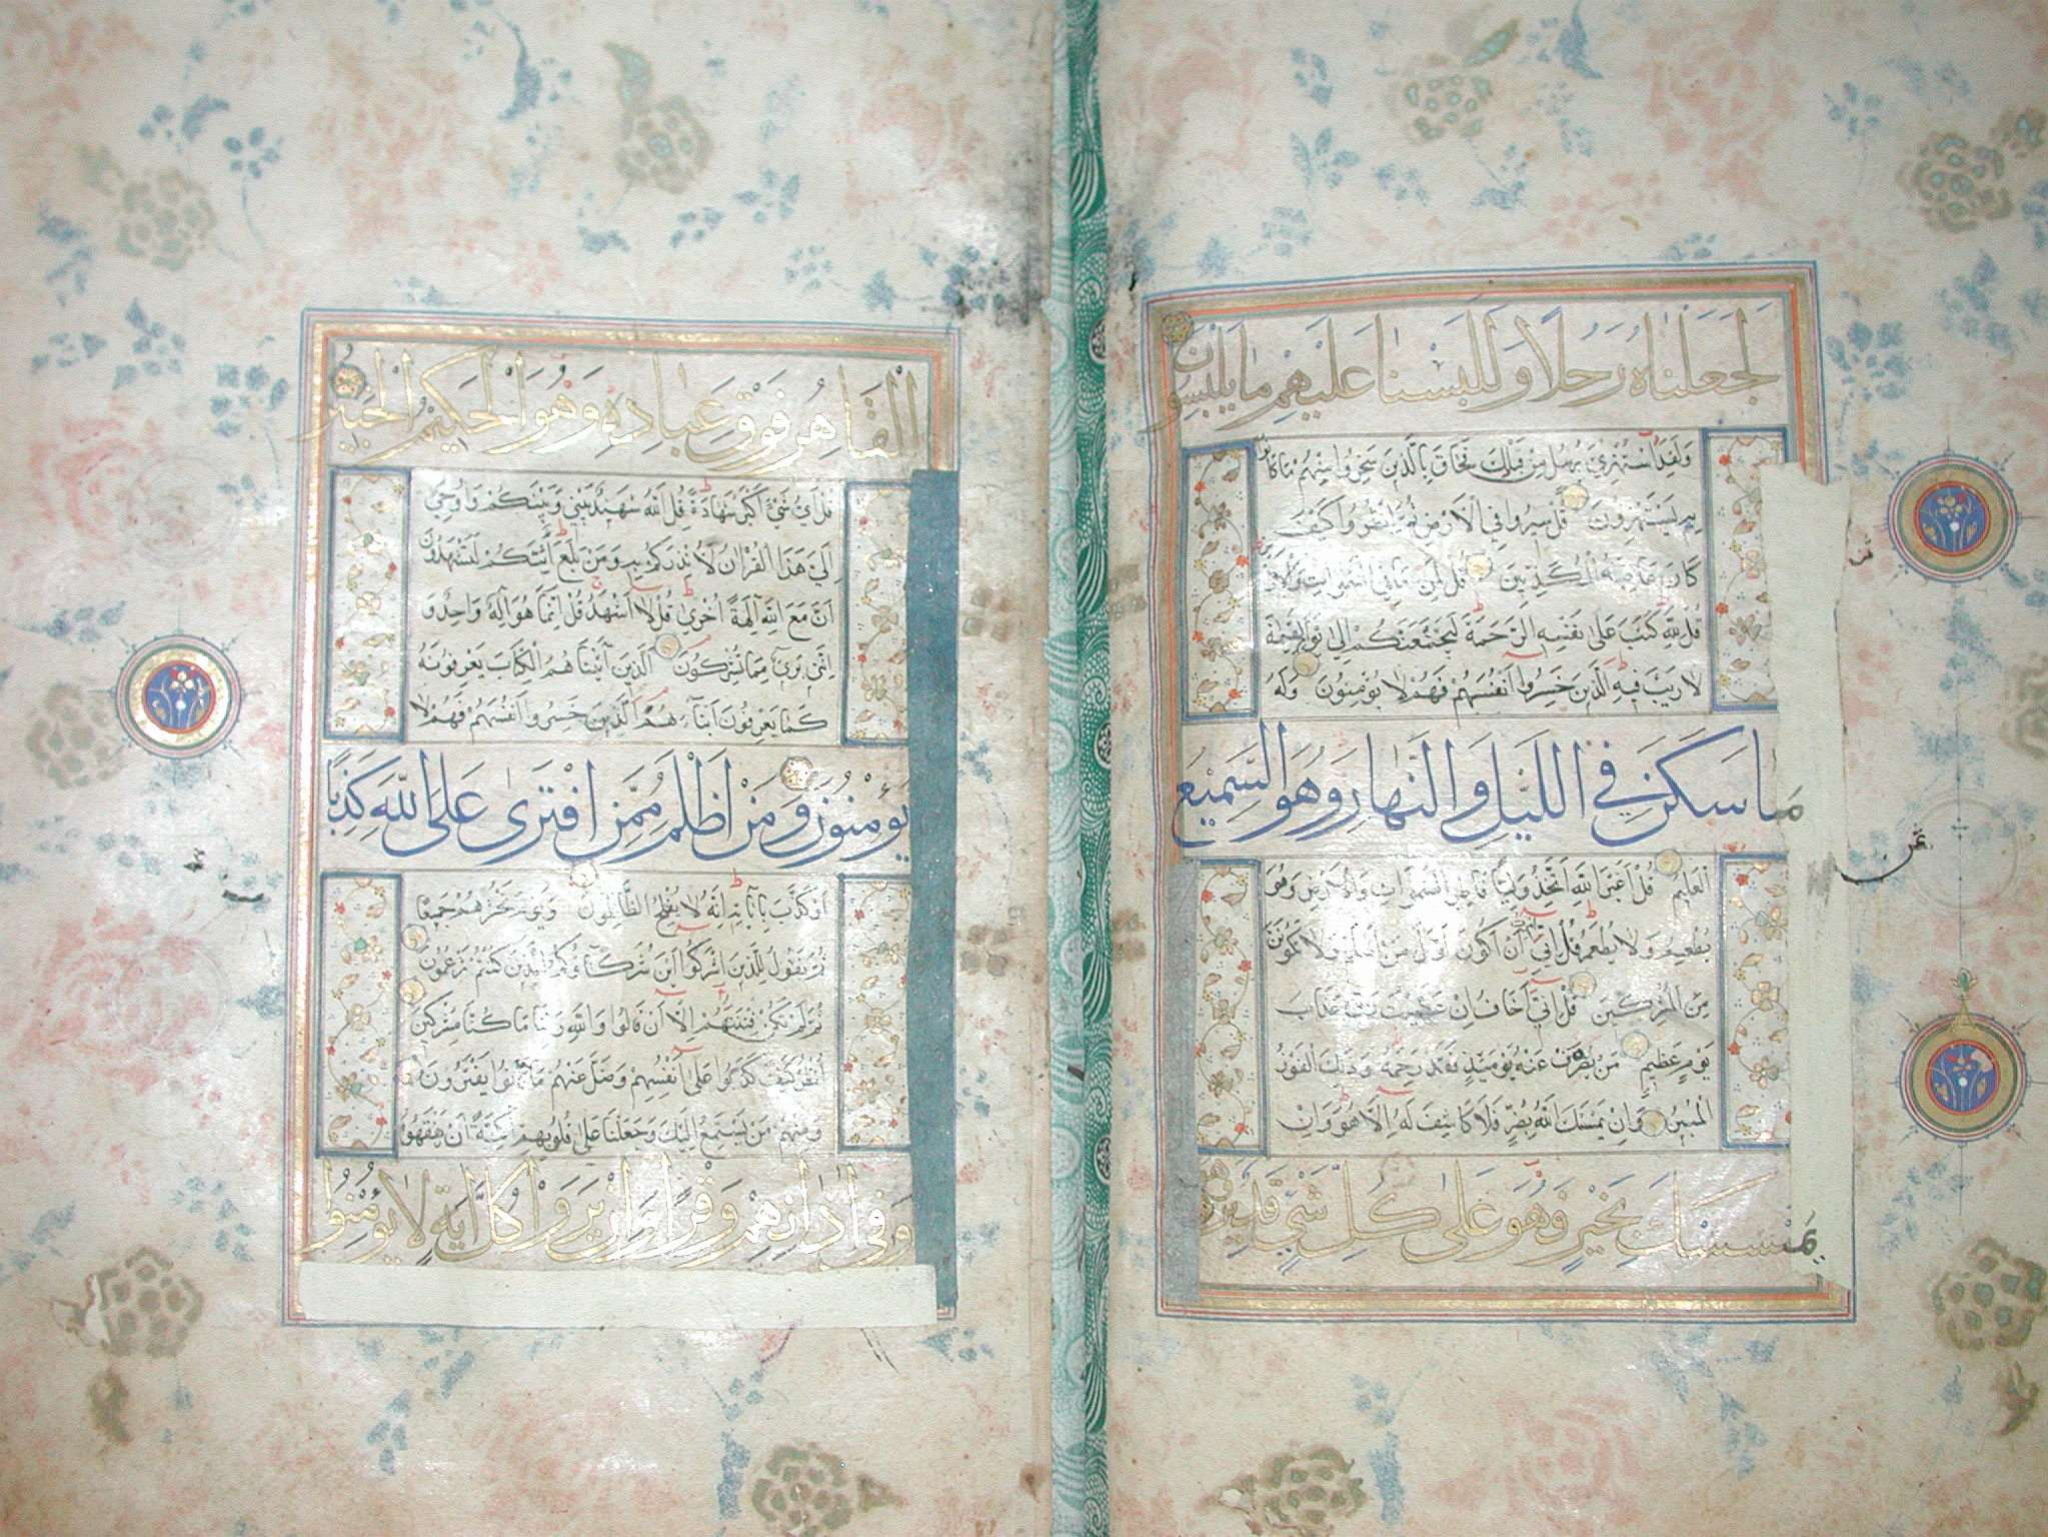 لَجَعَلْنَاهُ رَجُلًا وَلَلَبَسْنَا عَلَيْهِمْ مَا يَلْبِسُونَ
وَلَقَدِ اسْتُهْزِئَ بِرُسُلٍ مِنْ قَبْلِكَ فَحَاقَ بِالَّذِينَ سَخِرُوا مِنْهُمْ مَا كَانُوا
بِهِ يَسْتَهْزِؤُنَ قُلْ سِيرُوا فِي الْأَرْضِ ثُمَّ انْظُرُوا كَيْفَ
كَانَ عَاقِبَةُ الْمُكَذِّبِينَ قُلْ لِمَنْ مَا فِي السَّمٰوَاتِ وَالْأَرْضِ
قُلْ لِلّٰهِ كَتَبَ عَلَى نَفْسِهِ الرَّحْمَةَ لَيَجْمَعَنَّكُمْ إِلَى يَوْمِ الْقِيٰمَةِ
لَا رَيْبَ فِيهِ الَّذِينَ خَسِرُوا أَنْفُسَهُمْ فَهُمْ لَا يُؤْمِنُونَ وَلَهُ
مَا سَكَنَ فِي اللَّيْلِ وَالنَّهَارِ وَهُوَ السَّمِيعُ
الْعَلِيمُ قُلْ أَغَيْرَ اللّٰهِ أَتَّخِذُ وَلِيًّا فَاطِرِ السَّمٰوَاتِ وَالْأَرْضِ وَهُوَ
يُطْعِمُ وَلَا يُطْعَمُ قُلْ إِنِّي أُمِرْتُ أَنْ أَكُونَ أَوَّلَ مَنْ أَسْلَمَ وَلَا تَكُونَنَّ
مِنَ الْمُشْرِكِينَ قُلْ إِنِّي أَخَافُ إِنْ عَصَيْتُ رَبِّي عَذَابَ
يَوْمٍ عَظِيمٍ مَنْ يُصْرَفْ عَنْهُ يَوْمَئِذٍ فَقَدْ رَحِمَهُ وَذٰلِكَ الْفَوْزُ
الْمُبِينُ وَإِنْ يَمْسَسْكَ اللّٰهُ بِضُرٍّ فَلَا كَاشِفَ لَهُ إِلَّا هُوَ وَإِنْ
يَمْسَسْكَ بِخَيْرٍ فَهُوَ عَلَى كُلِّ شَيْءٍ قَدِيرٌ وَهُوَ
ثمن
الْقَاهِرُ فَوْقَ عِبَادِهِ وَهُوَ الْحَكِيمُ الْخَبِيرُ
قُلْ أَيُّ شَيْءٍ أَكْبَرُ شَهَادَةً قُلِ اللّٰهُ شَهِيدٌ بَيْنِي وَبَيْنَكُمْ وَأُوحِيَ
إِلَيَّ هٰذَا الْقُرْآنُ لِأُنْذِرَكُمْ بِهِ وَمَنْ بَلَغَ أَئِنَّكُمْ لَتَشْهَدُونَ
أَنَّ مَعَ اللّٰهِ آلِهَةً أُخْرَى قُلْ لَا أَشْهَدُ قُلْ إِنَّمَا هُوَ إِلٰهٌ وَاحِدٌ وَ
إِنَّنِي بَرِيءٌ مِمَّا تُشْرِكُونَ الَّذِينَ آتَيْنَاهُمُ الْكِتَابَ يَعْرِفُونَهُ
كَمَا يَعْرِفُونَ أَبْنَاءَهُمُ الَّذِينَ خَسِرُوا أَنْفُسَهُمْ فَهُمْ لَا
يُؤْمِنُونَ وَمَنْ أَظْلَمُ مِمَّنِ افْتَرَى عَلَى اللّٰهِ كَذِبًا
أَوْ كَذَّبَ بِآيَاتِهِ إِنَّهُ لَا يُفْلِحُ الظَّالِمُونَ وَيَوْمَ نَحْشُرُهُمْ جَمِيعًا
ثُمَّ نَقُولُ لِلَّذِينَ أَشْرَكُوا أَيْنَ شُرَكَاؤُكُمُ الَّذِينَ كُنْتُمْ تَزْعُمُونَ
ثُمَّ لَمْ تَكُنْ فِتْنَتُهُمْ إِلَّا أَنْ قَالُوا وَاللّٰهِ رَبِّنَا مَا كُنَّا مُشْرِكِينَ
أُنْظُرْ كَيْفَ كَذَبُوا عَلَى أَنْفُسِهِمْ وَضَلَّ عَنْهُمْ مَا كَانُوا يَفْتَرُونَ
وَمِنْهُمْ مَنْ يَسْتَمِعُ إِلَيْكَ وَجَعَلْنَا عَلَى قُلُوبِهِمْ أَكِنَّةً أَنْ يَفْقَهُوهُ
وَفِي آذَانِهِمْ وَقْرًا وَإِنْ يَرَوْا كُلَّ آيَةٍ لَا يُؤْمِنُوا